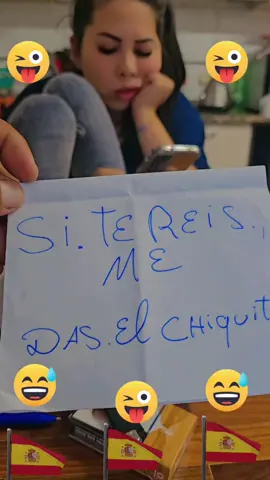 Si. TE REIS.,
ME
DAS. El CHiquit